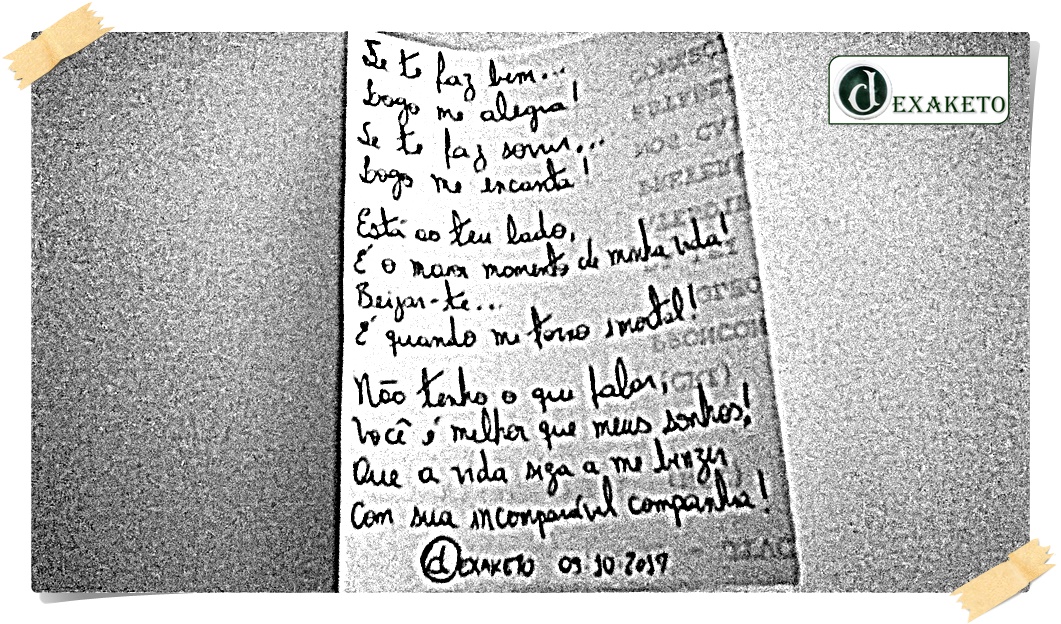 Se te faz bem...
Logo me alegra!
Se te faz sorrir...
Logo me encanta!
Está ao teu lado,
É o maior momento de minha vida!
Beijar-te...
É quando me torno imortal!
Não tenho o que falar,
Você é melhor que meus sonhos!
Que a vida siga a me benzer
Com sua incomparável companhia!
dEXAKETO 09.10.2017
dEXAKETO